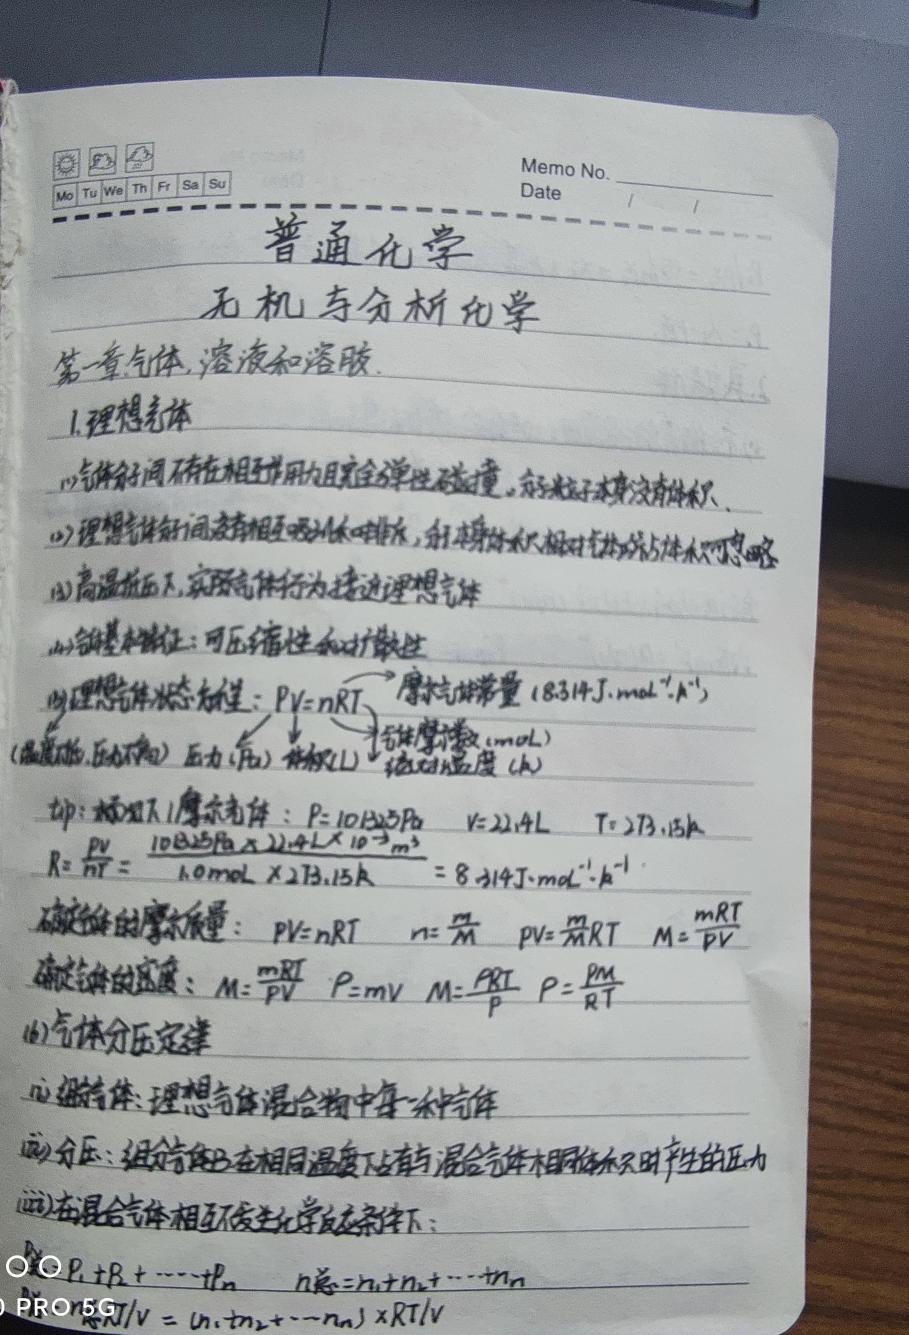 Memo No.
Mo Tu We Th Fr Sa Su
Date / /
普通化学
无机与分析化学
第一章气体,溶液和溶胶.
1.理想气体
(1)气体分子间不存在相互作用力且完全弹性碰撞。分子粒子本身没有体积.
(2)理想气体分子间没有相互吸引和排斥,分子本身体积相对气体所占体积可忽略
(3)高温低压下,实际气体行为接近理想气体
(4)气体基本特征:可压缩性和扩散性
(5)理想气体状态方程:PV=nRT 摩尔气体常量(8.314J·mol⁻¹·k⁻¹)
气体摩尔数(moL)
(温度不低,压力不高) 压力(Pa) 体积(L) 绝对温度(k)
tip:标况下1摩尔气体:P=101325Pa V=22.4L T=273.15k
R=PV/nT=101325Pa×22.4L×10⁻³m³/1.0moL×273.15k=8.314J·moL⁻¹·k⁻¹
确定气体的摩尔质量:PV=nRT n=m/M PV=m/MRT M=mRT/PV
确定气体的密度:M=mRT/PV ρ=mV M=ρRT/P ρ=PM/RT
(6)气体分压定律
i)组分气体:理想气体混合物中每一种气体
(ii)分压:组分气体B在相同温度下占有与混合气体相同体积时产生的压力
(iii)在混合气体相互不发生化学反应条件下:
P总=P₁+P₂+······+Pn n总=n₁+n₂+······+nn
PRO 5G
n总RT/V=(n₁+n₂+···nn)×RT/V